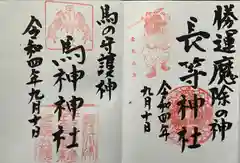 勝運魔除の神
長等神社
令和四年九月十日
馬の守護神
馬神神社
令和四年九月十日